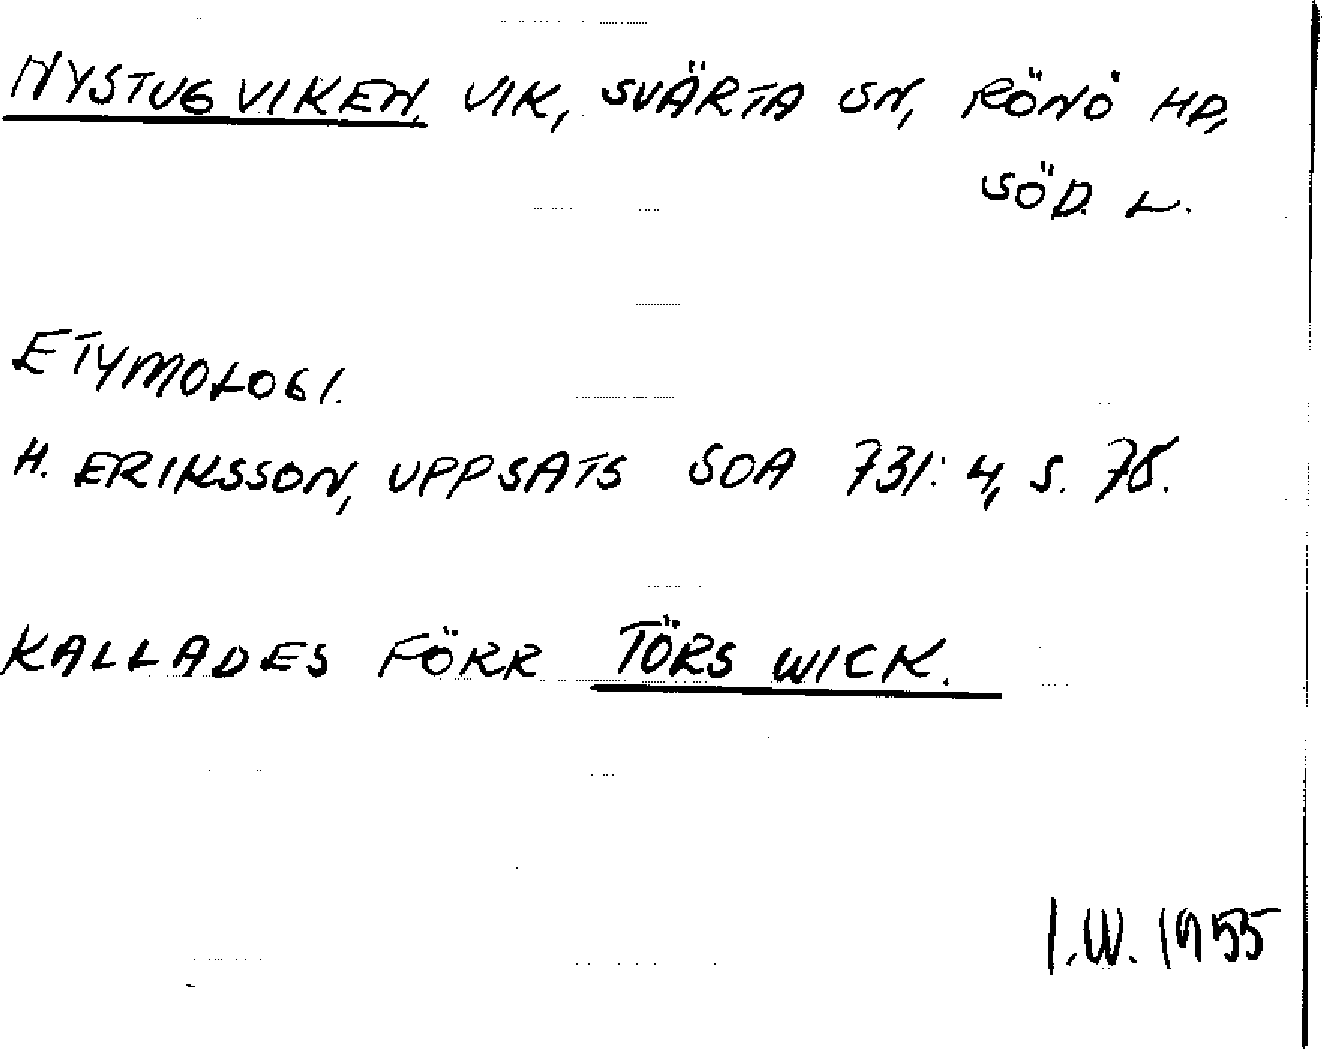 NYSTUGVIKEN, VIK, SVÄRTA SN, RÖNÖ HD,
SÖD. L.
ETYMOLOGI.
H. ERIKSSON, UPPSATS SOA 731:4, S. 78.
KALLADES FÖRR TÖRS WICK.
I.W. 1955